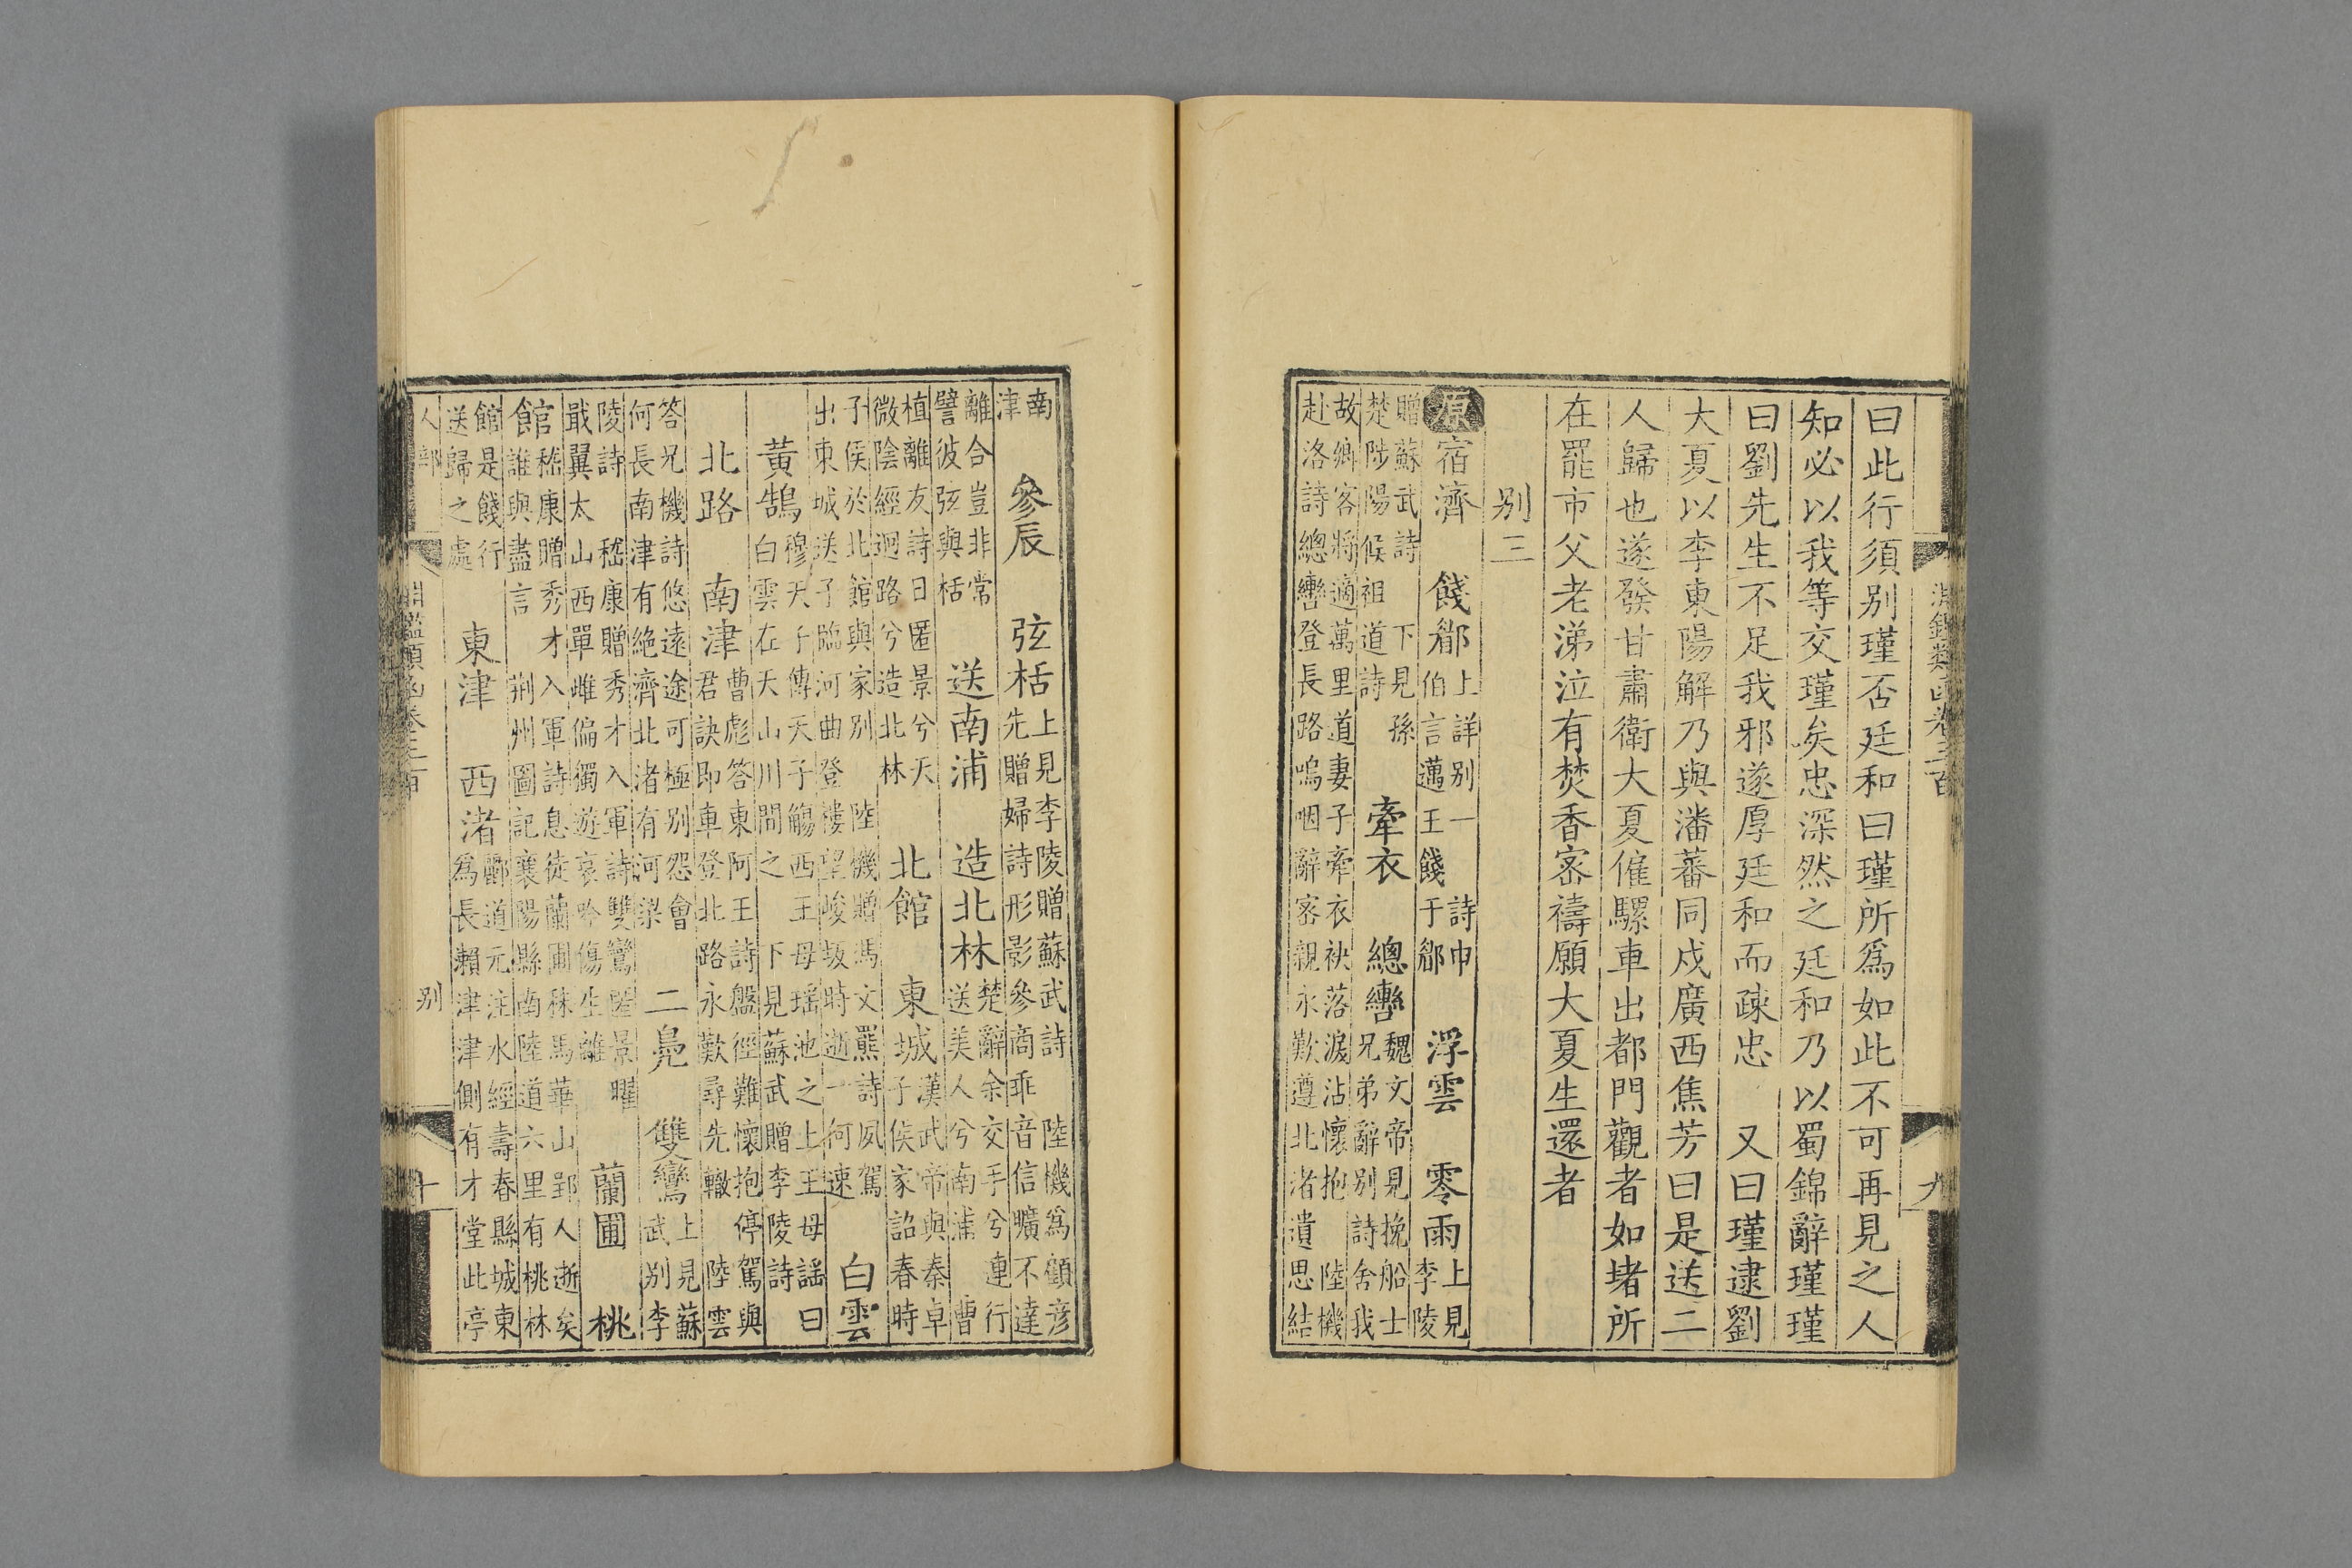 淵鑑類函卷三百 九
曰此行須别瑾否廷和曰瑾所爲如此不可再見之人
知必以我等交瑾矣忠深然之廷和乃以蜀錦辭瑾瑾
曰劉先生不足我邪遂厚廷和而疎忠 又曰瑾逮劉
大夏以李東陽解乃與潘蕃同戍廣西焦芳曰是送二
人歸也遂發甘肅衛大夏僱騾車出都門觀者如堵所
在罷市父老涕泣有焚香密禱願大夏生還者
别三
原宿濟 餞郿 上詳别一 詩申伯言邁王餞于郿 浮雲 零雨 上見李陵
贈蘇武詩 下見孫楚陟陽候祖道詩 牽衣 總轡 魏文帝見挽船士兄弟辭别詩舍我
故鄉客將適萬里道妻子牽衣袂落淚沾懷抱 陸機赴洛詩總轡登長路嗚咽辭密親永歎遵北渚遺思結
南津 參辰 弦栝 上見李陵贈蘇武詩 陸機爲顧彦先贈婦詩形影參商乖音信曠不達
離合豈非常譬彼弦與栝 送南浦 造北林 楚辭余交手兮連行送美人兮南浦 曹
植離友詩日匿景兮天微陰經迴路兮造北林 北館 東城 漢武帝與秦卓子侯家詔春時
子侯於北館與家别 陸機贈馮文羆詩夙駕出東城送子臨河曲登樓望峻坂時逝一何速 白雲
黃鵠 穆天子傳天子觴西王母瑶池之上王母謡曰白雲在天山川間之 下見蘇武贈李陵詩
北路 南津 曹彪答東阿王詩盤徑難懷抱停駕與君訣即車登北路永歎尋先轍 陸雲
答兄機詩悠遠途可極别怨會何長南津有絶濟北渚有河梁 二鳧 雙鸞 上見蘇武别李
陵詩 嵇康贈秀才入軍詩雙鸞匿景曜戢翼太山西單雌偏獨遊哀吟傷生離 蘭圃 桃
館 嵇康贈秀才入軍詩息徒蘭圃秣馬華山郢人逝矣誰與盡言 荆州圖記襄陽縣南陸道六里有桃林
館是餞行送歸之處 東津 西渚 酈道元注水經壽春縣城東爲長瀨津津側有才堂此亭
人部 淵鑑類函卷三百 别 十